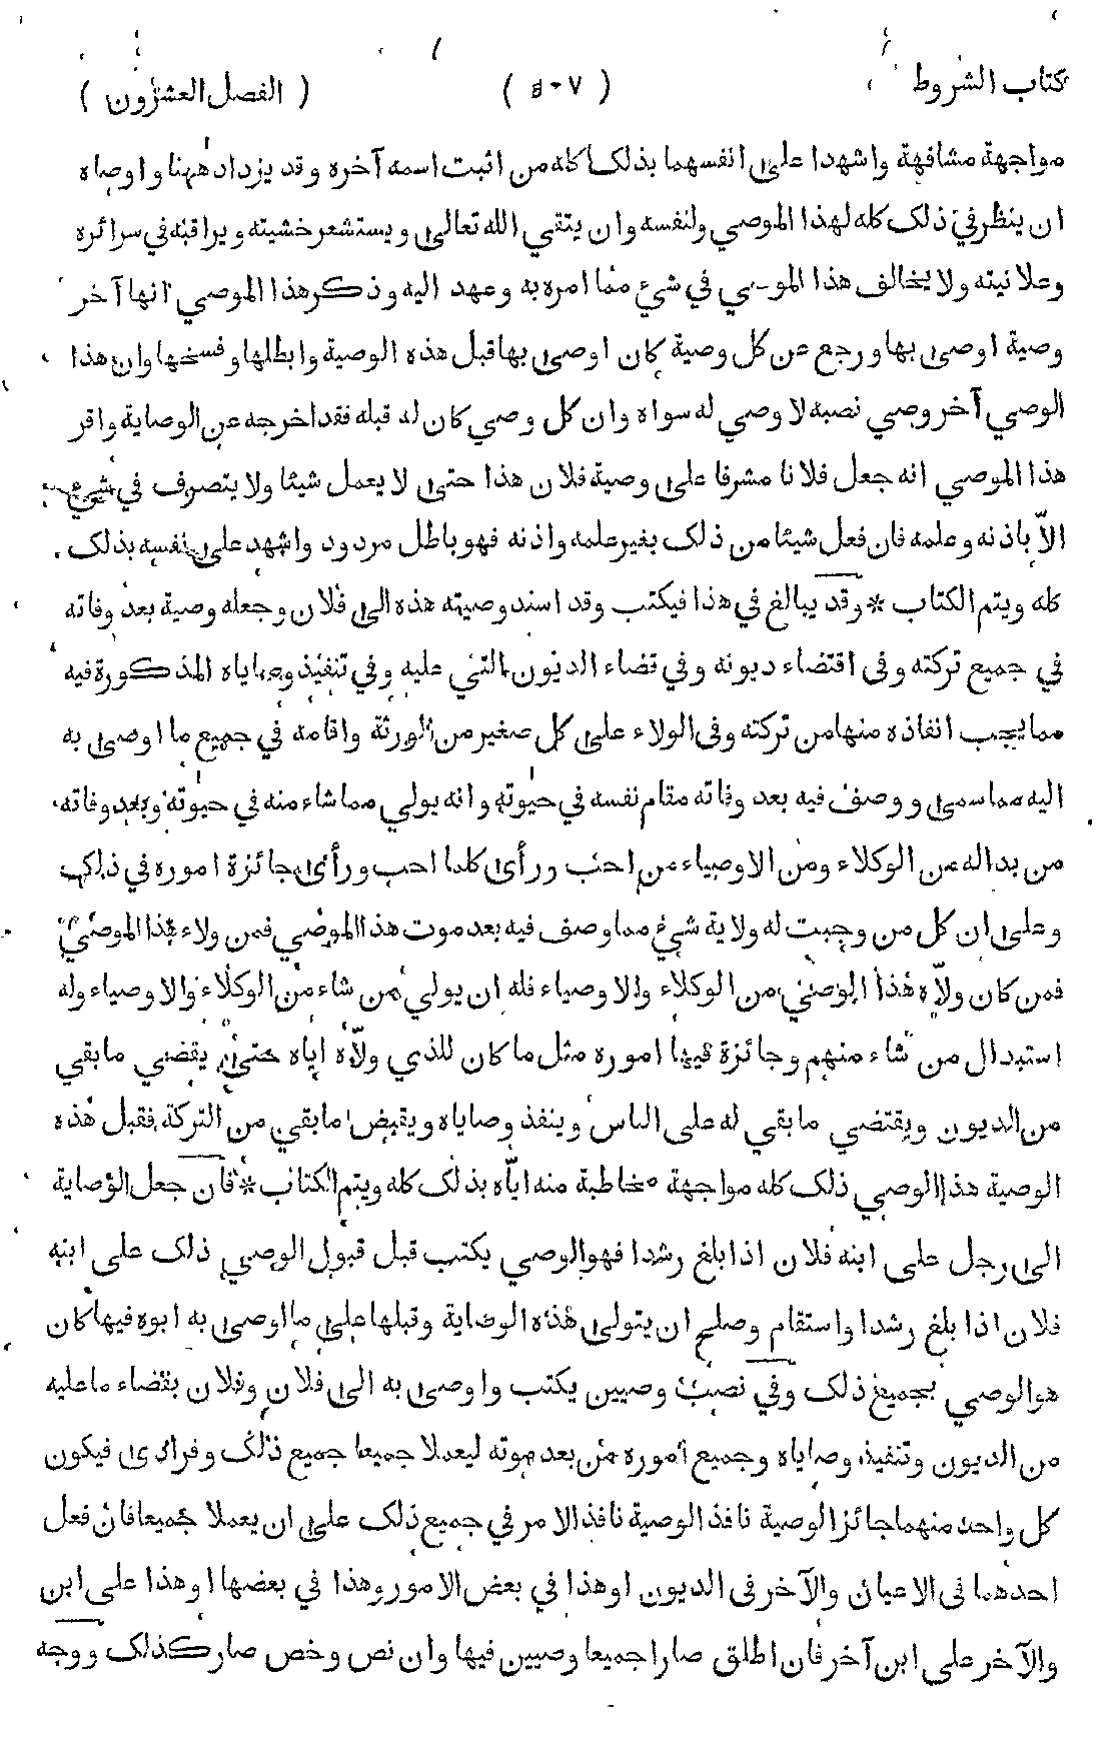 كتاب الشروط ( ٥٠٧ ) ( الفصل العشرون )
مواجهة مشافهة واشهدا على انفسهما بذلك كله من اثبت اسمه آخره وقد يزداد ههنا واوصاه
ان ينظر في ذلك كله لهذا الموصي ولنفسه وان يتقي الله تعالى ويستشعر خشيته ويراقبه في سرائره
وعلانيته ولا يخالف هذا الموصي في شيء مما امره به وعهد اليه وذكر هذا الموصي انها آخر
وصية اوصى بها ورجع عن كل وصية كان اوصى بها قبل هذه الوصية وابطلها وفسخها وان هذا
الوصي آخر وصي نصبه لا وصي له سواه وان كل وصي كان له قبله فقد اخرجه عن الوصاية واقر
هذا الموصي انه جعل فلانا مشرفا على وصية فلان هذا حتى لا يعمل شيئا ولا يتصرف في شيء
الاّ باذنه وعلمه فان فعل شيئا من ذلك بغير علمه واذنه فهو باطل مردود واشهد على نفسه بذلك
كله ويتم الكتاب * وقد يبالغ في هذا فيكتب وقد اسند وصيته هذه الى فلان وجعله وصية بعد وفاته
في جميع تركته وفى اقتضاء ديونه وفي قضاء الديون التي عليه وفي تنفيذ وصاياه المذكورة فيه
مما يجب انفاذه منها من تركته وفى الولاء على كل صغير من الورثة واقامه في جميع ما اوصى به
اليه مما سمى ووصف فيه بعد وفاته مقام نفسه في حيوته وانه يولي مما شاء منه في حيوته وبعد وفاته
من بداله من الوكلاء ومن الاوصياء من احب ورأى كلما احب ورأى جائزة اموره في ذلك
وعلى ان كل من وجبت له ولاية شيء مما وصف فيه بعد موت هذا الموصي فمن ولاء هذا الموصي
فمن كان ولاّه هذا الموصي من الوكلاء والاوصياء فله ان يولي من شاء من الوكلاء والاوصياء وله
استبدال من شاء منهم وجائزة فيها اموره مثل ما كان للذي ولاّه اياه حتى يقضي ما بقي
من الديون ويقتضي ما بقي له على الناس وينفذ وصاياه ويقبض ما بقي من التركة فقبل هذه
الوصية هذا الوصي ذلك كله مواجهة مخاطبة منه اياّه بذلك كله ويتم الكتاب * فان جعل الوصاية
الى رجل على ابنه فلان اذا بلغ رشدا فهو الوصي يكتب قبل قبول الوصي ذلك على ابنه
فلان اذا بلغ رشدا واستقام وصلح ان يتولى هذه الوصاية وقبلها على ما اوصى به ابوه فيها كان
هو الوصي بجميع ذلك وفي نصيب وصيين يكتب واوصى به الى فلان وفلان بقضاء ما عليه
من الديون وتنفيذ وصاياه وجميع اموره من بعد موته ليعملا جميعا جميع ذلك وفرادى فيكون
كل واحد منهما جائز الوصية نافذ الوصية نافذ الامر في جميع ذلك على ان يعملا جميعا فان فعل
احدهما فى الاعيان والآخر فى الديون او هذا في بعض الامور وهذا في بعضها او هذا على ابن
والآخر على ابن آخر فان اطلق صارا جميعا وصيين فيها وان نص وخص صار كذلك ووجه